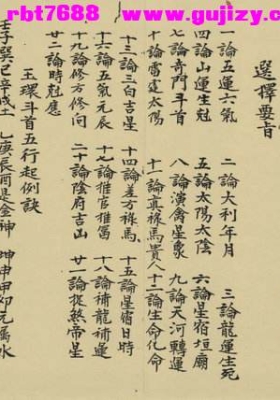 rbt7688
www.gujizy.c
選擇要旨
一論五運六氣 二論大利年月 三論龍運生死
四論山運生尅 五論太陽太陰 六論星宿垣廟
七論奇門斗首 八論演禽星象 九論天河轉運
十論雷霆太陽 十一論真祿馬貴人 十二論生命化命
十三論三白吉星 十四論差方祿馬 十五論星宿日時
十六論五氣元辰 十七論推官推富 十八論補龍補運
十九論修方修向 二十論陰府吉山 廿一論捉煞帝星
廿二論時尅應
玉環斗首五行起例訣
子巽巳辛戌土 乙庚辰酉是金神 坤申甲卯元屬水